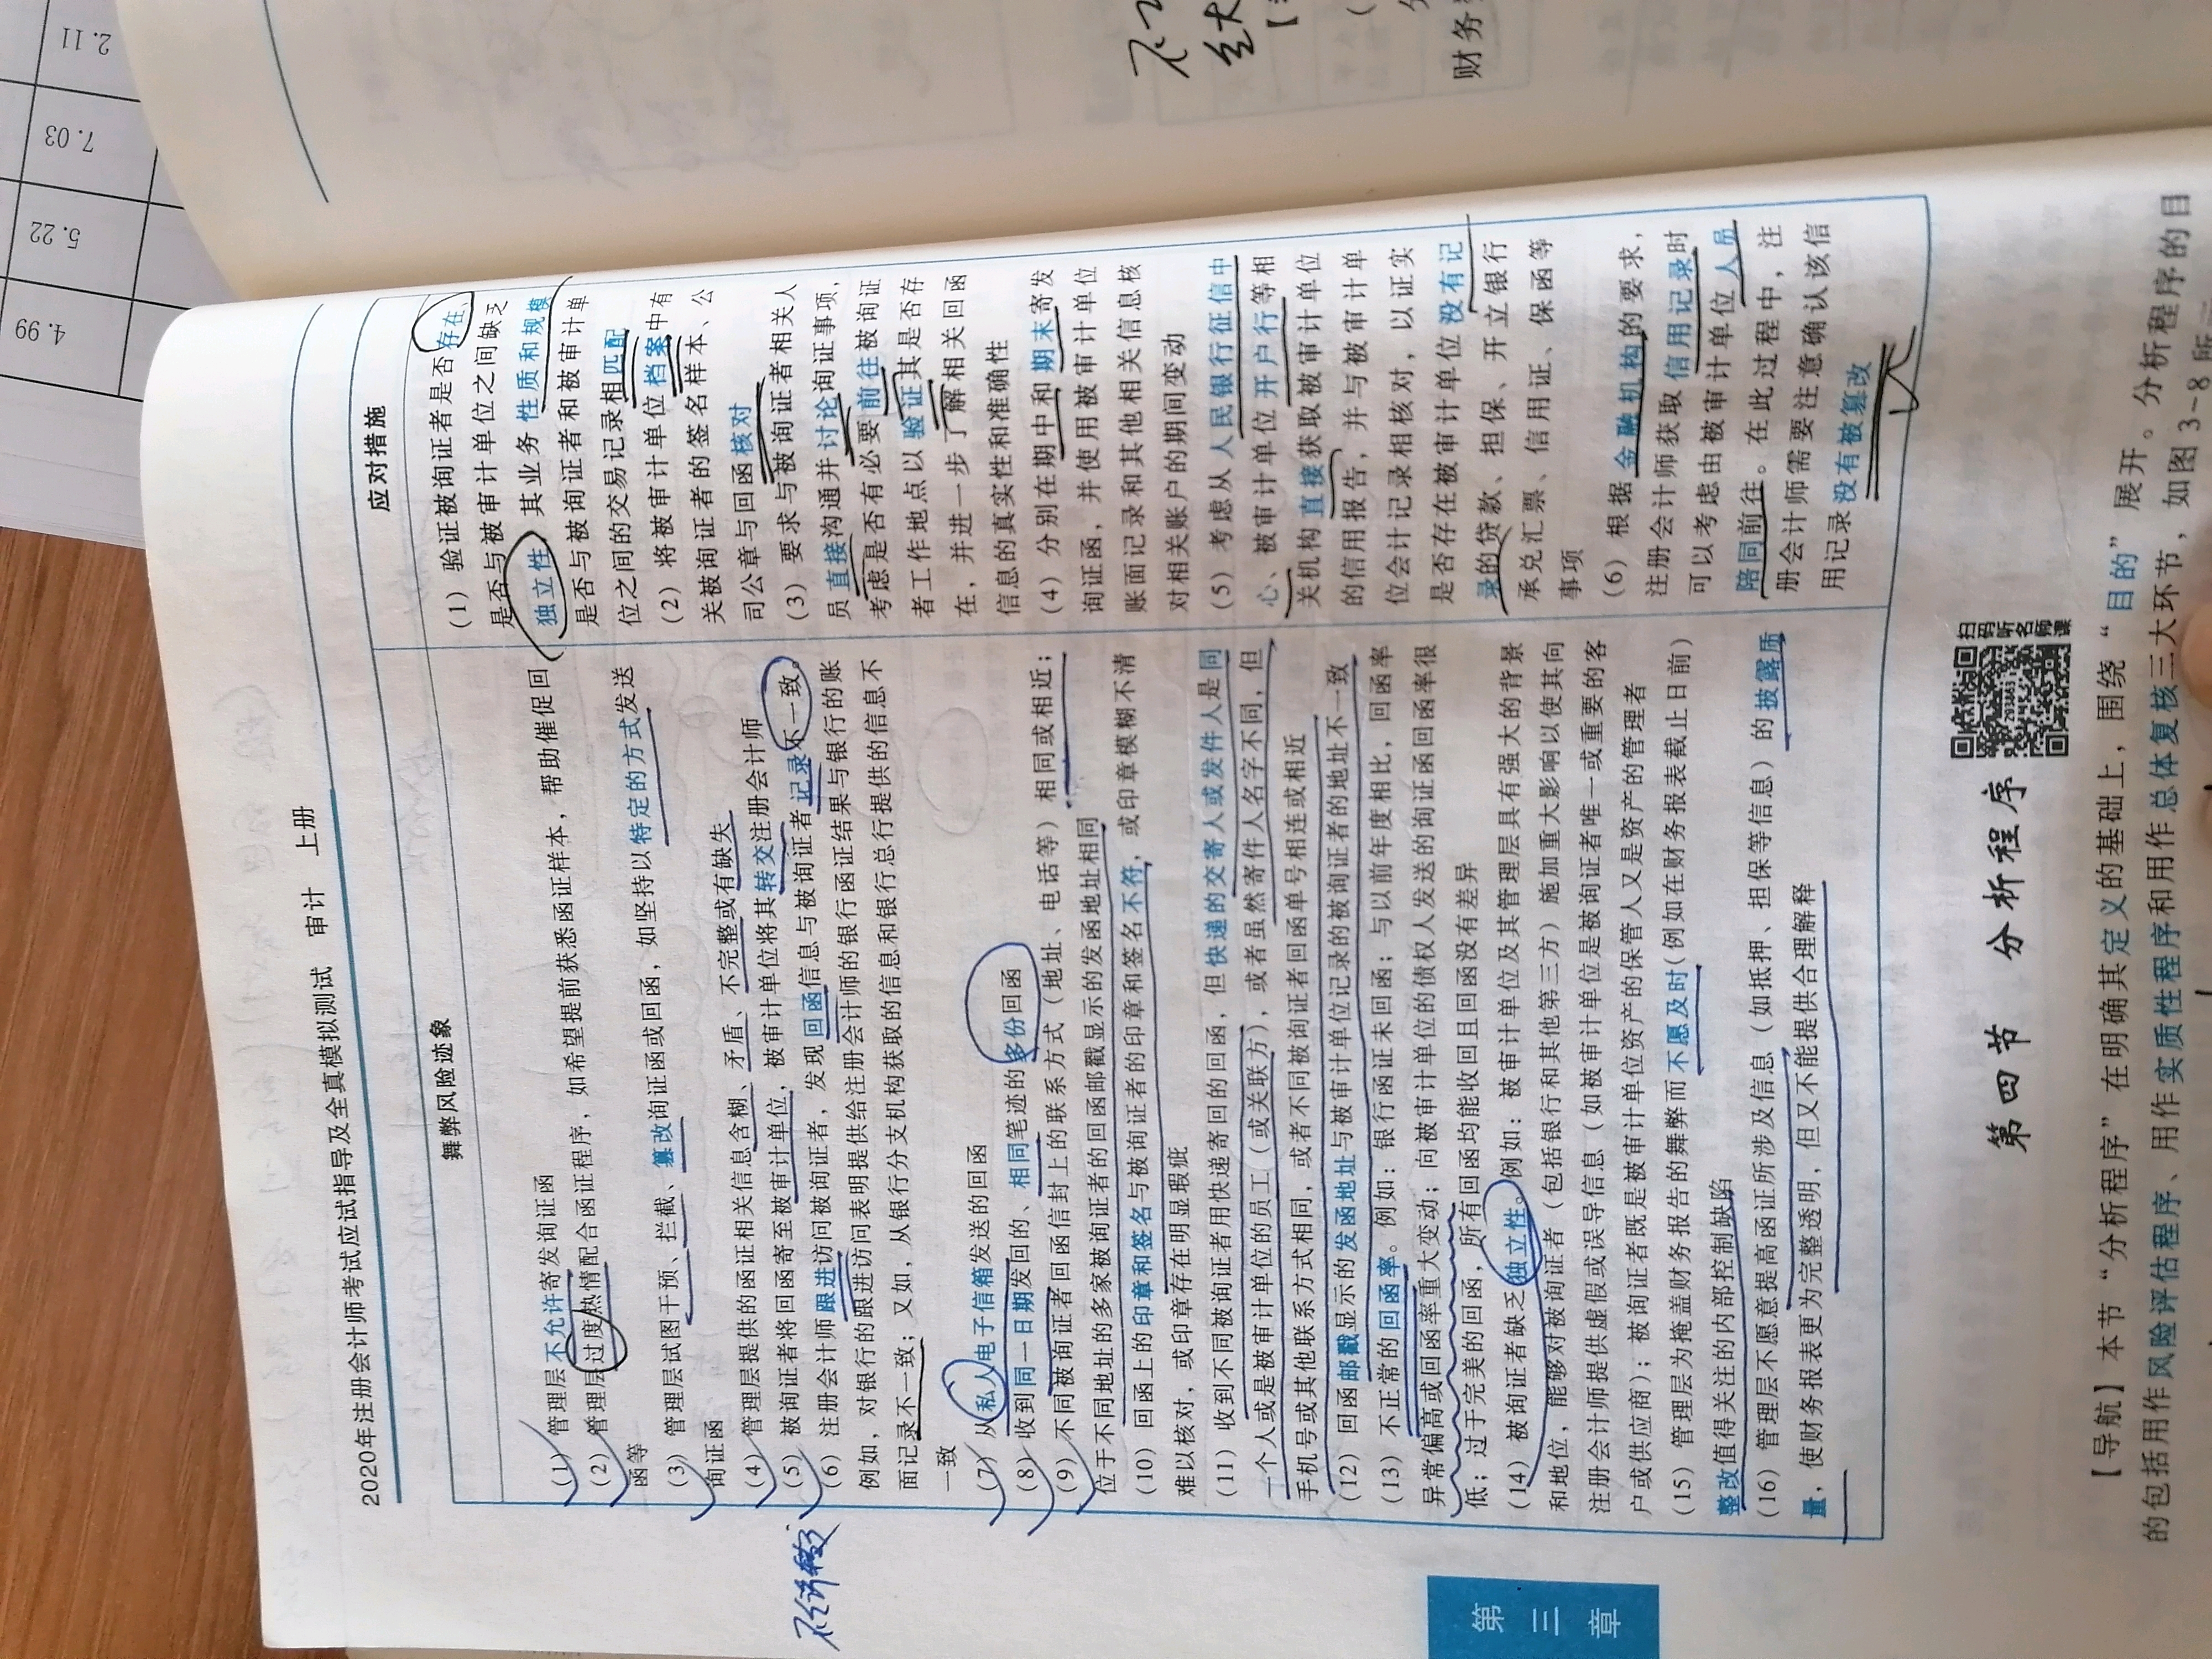 2020年注册会计师考试应试指导及全真模拟测试 审计 上册
舞弊风险迹象
(1) 管理层不允许寄发询证函
(2) 管理层过度热情配合函证程序，如希望提前获悉函证样本，帮助催促回
函等
(3) 管理层试图干预、拦截、篡改询证函或回函，如坚持以特定的方式发送
询证函
(4) 管理层提供的函证相关信息含糊、矛盾、不完整或有缺失
(5) 被询证者将回函寄至被审计单位，被审计单位将其转交注册会计师
(6) 注册会计师跟进访问被询证者，发现回函信息与被询证者记录不一致。
例如，对银行的跟进访问表明提供给注册会计师的银行函证结果与银行的账
面记录不一致；又如，从银行分支机构获取的信息和银行总行提供的信息不
一致
(7) 从私人电子信箱发送的回函
(8) 收到同一日期发回的、相同笔迹的多份回函
(9) 不同被询证者回函信封上的联系方式（地址、电话等）相同或相近；
位于不同地址的多家被询证者的回函邮戳显示的发函地址相同
(10) 回函上的印章和签名与被询证者的印章和签名不符，或印章模糊不清
难以核对，或印章存在明显瑕疵
(11) 收到不同被询证者用快递寄回的回函，但快递的交寄人或发件人是同
一个人或是被审计单位的员工（或关联方），或者虽然寄件人名字不同，但
手机号或其他联系方式相同，或者不同被询证者回函单号相连或相近
(12) 回函邮戳显示的发函地址与被审计单位记录的被询证者的地址不一致
(13) 不正常的回函率。例如：银行函证未回函；与以前年度相比，回函率
异常偏高或回函率重大变动；向被审计单位的债权人发送的询证函回函率很
低；过于完美的回函，所有回函均能收回且回函没有差异
(14) 被询证者缺乏独立性。例如：被审计单位及其管理层具有强大的背景
和地位，能够对被询证者（包括银行和其他第三方）施加重大影响以使其向
注册会计师提供虚假或误导信息（如被审计单位是被询证者唯一或重要的客
户或供应商）；被询证者既是被审计单位资产的保管人又是资产的管理者
(15) 管理层为掩盖财务报告的舞弊而不愿及时(例如在财务报表截止日前)
整改值得关注的内部控制缺陷
(16) 管理层不愿意提高函证所涉及信息（如抵押、担保等信息）的披露质
量，使财务报表更为完整透明，但又不能提供合理解释
应对措施
(1) 验证被询证者是否存在、
是否与被审计单位之间缺乏
独立性，其业务性质和规模
是否与被询证者和被审计单
位之间的交易记录相匹配
(2) 将被审计单位档案中有
关被询证者的签名样本、公
司公章与回函核对
(3) 要求与被询证者相关人
员直接沟通并讨论询证事项，
考虑是否有必要前往被询证
者工作地点以验证其是否存
在，并进一步了解相关回函
信息的真实性和准确性
(4) 分别在期中和期末寄发
询证函，并使用被审计单位
账面记录和其他相关信息核
对相关账户的期间变动
(5) 考虑从人民银行征信中
心、被审计单位开户行等相
关机构直接获取被审计单位
的信用报告，并与被审计单
位会计记录相核对，以证实
是否存在被审计单位没有记
录的贷款、担保、开立银行
承兑汇票、信用证、保函等
事项
(6) 根据金融机构的要求，
注册会计师获取信用记录时
可以考虑由被审计单位人员
陪同前往。在此过程中，注
册会计师需要注意确认该信
用记录没有被篡改
第三章
第四节 分析程序
扫码听名师课
【导航】本节“分析程序”在明确其定义的基础上，围绕“目的”展开。分析程序的目
的包括用作风险评估程序、用作实质性程序和用作总体复核三大环节，如图3-8所
财务
4.99
5.22
7.03
2.11